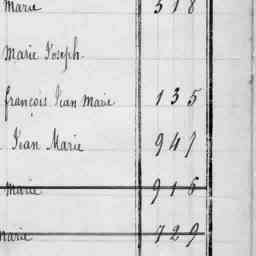 Marie 3 1 8
Marie Joseph.
françois Jean Marie 1 3 5
Jean Marie 9 4 7
Marie 9 1 5
Marie 7 2 9